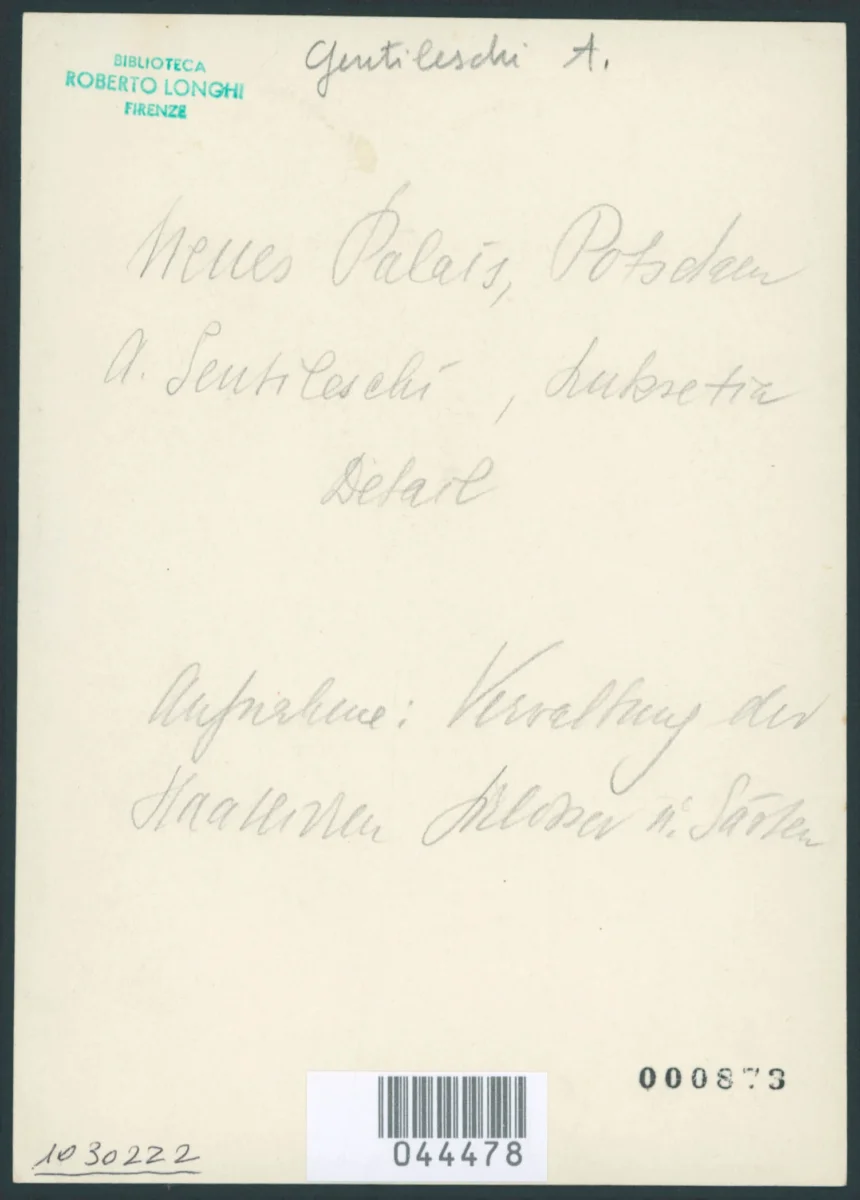 BIBLIOTECA
ROBERTO LONGHI
FIRENZE
Gentileschi A.
Neues Palais, Potsdam
A. Gentileschi, Lukretia
Detail
Aufnahme: Verwaltung der
Staatlichen Schlösser u. Gärten
000873
044478
1030222